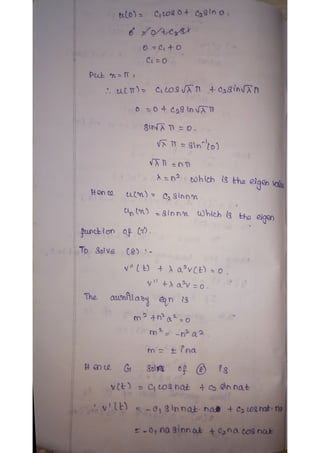 u(0) = C₁ cos 0 + C₂ sin 0.
0 = C₁ + 0
C₁ = 0
Put x = π,
∴ u(π) = C₁ cos √λ π + C₂ sin √λ π
0 = 0 + C₂ sin √λ π
sin √λ π = 0.
√λ π = sin⁻¹(0)
√λ π = nπ
λ = n² which is the eigen value
Hence u(x) = C₂ sin nx
uₙ(x) = sin nx which is the eigen
function of (7).
To solve (8) :-
v''(t) + λ a² v(t) = 0.
v'' + λ a² v = 0.
The auxillary eqn is
m² + n² a² = 0
m² = -n² a²
m = ± i na
Hence G soln of ⑧ is
v(t) = C₁ cos nat + C₂ sin nat
∴ v'(t) = - C₁ sin nat · na + C₂ cos nat · na
= - C₁ na sin nat + C₂ na cos nat